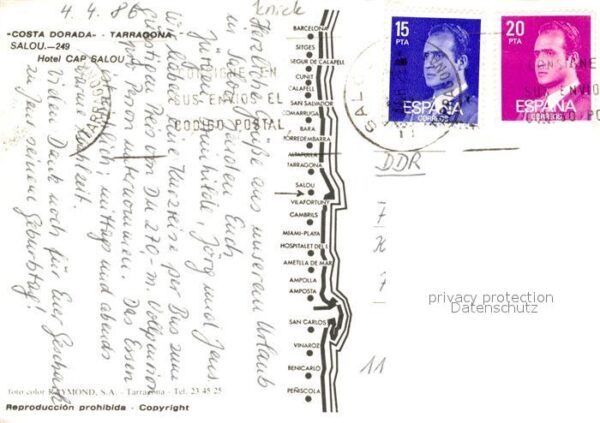 4.4.86
knick
-COSTA DORADA- - TARRAGONA
SALOU.-249
Hotel CAP SALOU
Herzliche Grüße aus unserem Urlaub
in Salou senden Euch
Jürgen, Jörg und Jens
Wir haben eine Kurzreise per Bus zum
Preis von DM 270,- m. Vollpension
unternommen. Das Essen
ist mittags und abends
Vielen Dank noch für Euer Geschenk
zu Jens seinem Geburtstag!
CONSIGNE EN
SUS ENVIOS EL
CODIGO POSTAL
SALOU
BARCELONA
SITGES
SEGUR DE CALAFELL
CUNIT
CALAFELL
SAN SALVADOR
COMARRUGA
BARA
TORREDEMBARRA
ALTAFULLA
TARRAGONA
SALOU
VILAFORTUNY
CAMBRILS
MIAMI-PLAYA
HOSPITALET DEL I.
AMETLLA DE MAR
AMPOLLA
AMPOSTA
SAN CARLOS
VINAROZ
BENICARLO
PEÑISCOLA
15
PTA
ESPAÑA
CORREOS
20
PTA
ESPAÑA
CORREOS
DDR
7
11
privacy protection
Datenschutz
foto color RAYMOND, S.A. - Tarragona - Tel. 23 45 25
Reproducción prohibida - Copyright